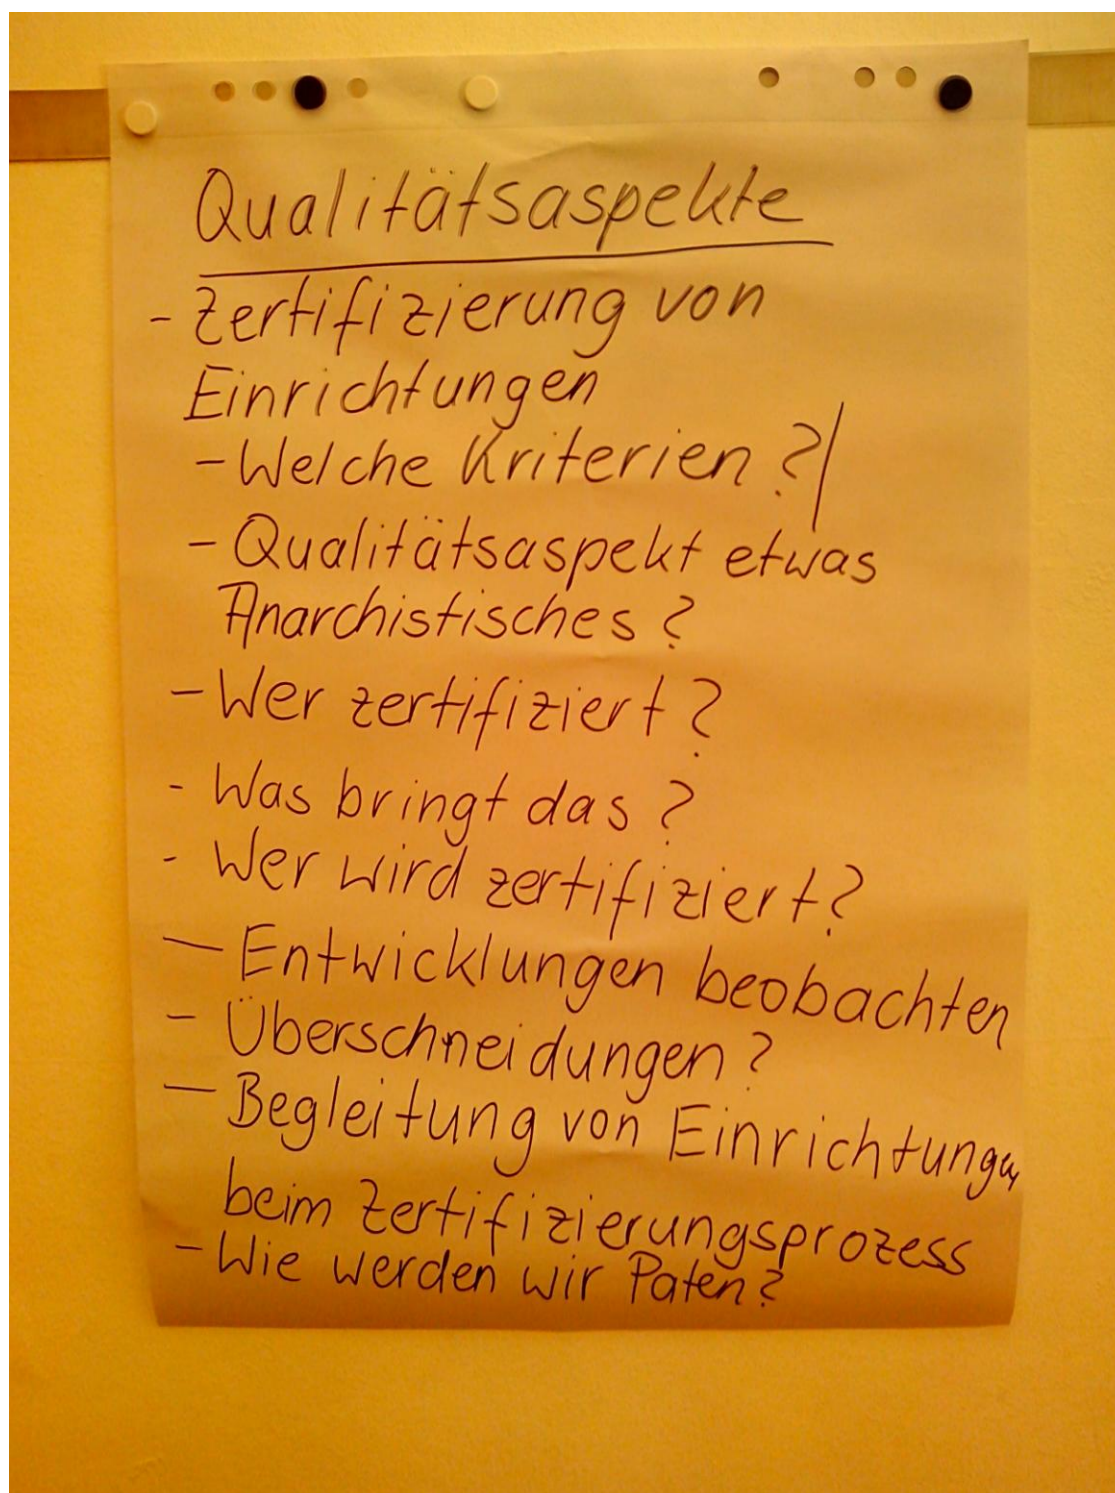 Qualitätsaspekte
- Zertifizierung von
Einrichtungen
- Welche Kriterien?
- Qualitätsaspekt etwas
Anarchistisches?
- Wer zertifiziert?
- Was bringt das?
- Wer wird zertifiziert?
- Entwicklungen beobachten
- Überschneidungen?
- Begleitung von Einrichtungen
beim Zertifizierungsprozess
- Wie werden wir Paten?